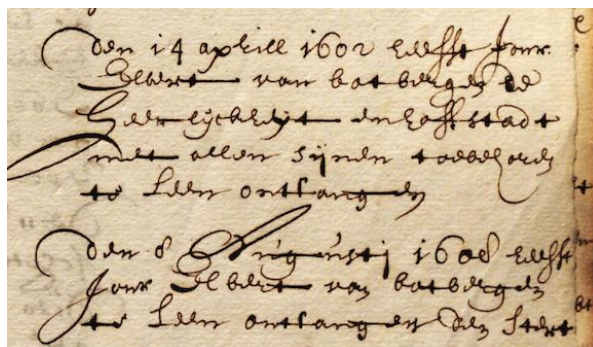 Den 14 aprill 1602 heefft Jonr
Elbert van botbergen de
Heerlijckheyt en hoffstadt
met allen sijnen toebehoren
te leen ontfangen
Den 8 Augusti 1608 heefft
Jonr Elbert van botbergen
te leen ontfangen den